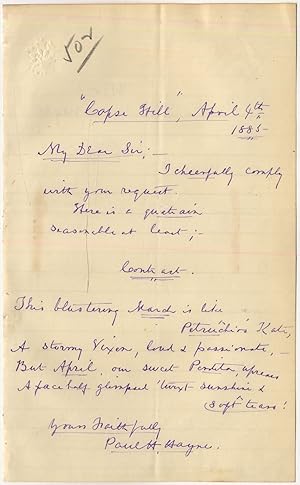 502
"Copse Hill", April 4th
1885-
My Dear Sir;—
I cheerfully comply
with your request.
Here is a quatrain
seasonable at least;-
Contrast.
This blustering March is like
Petruchio's Kate,
A stormy Vixen, loud & passionate,—
But April, our sweet Perdita,
A face half glimpsed 'twixt sunshine &
soft tears!
Yours Faithfully
Paul H. Hayne.